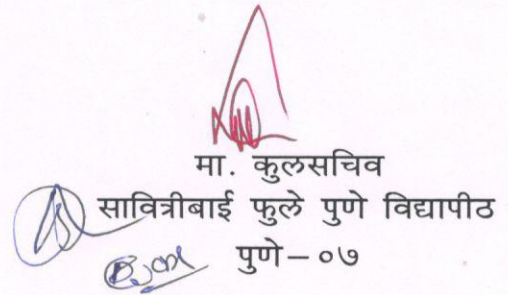 मा. कुलसचिव
सावित्रीबाई फुले पुणे विद्यापीठ
पुणे–०७